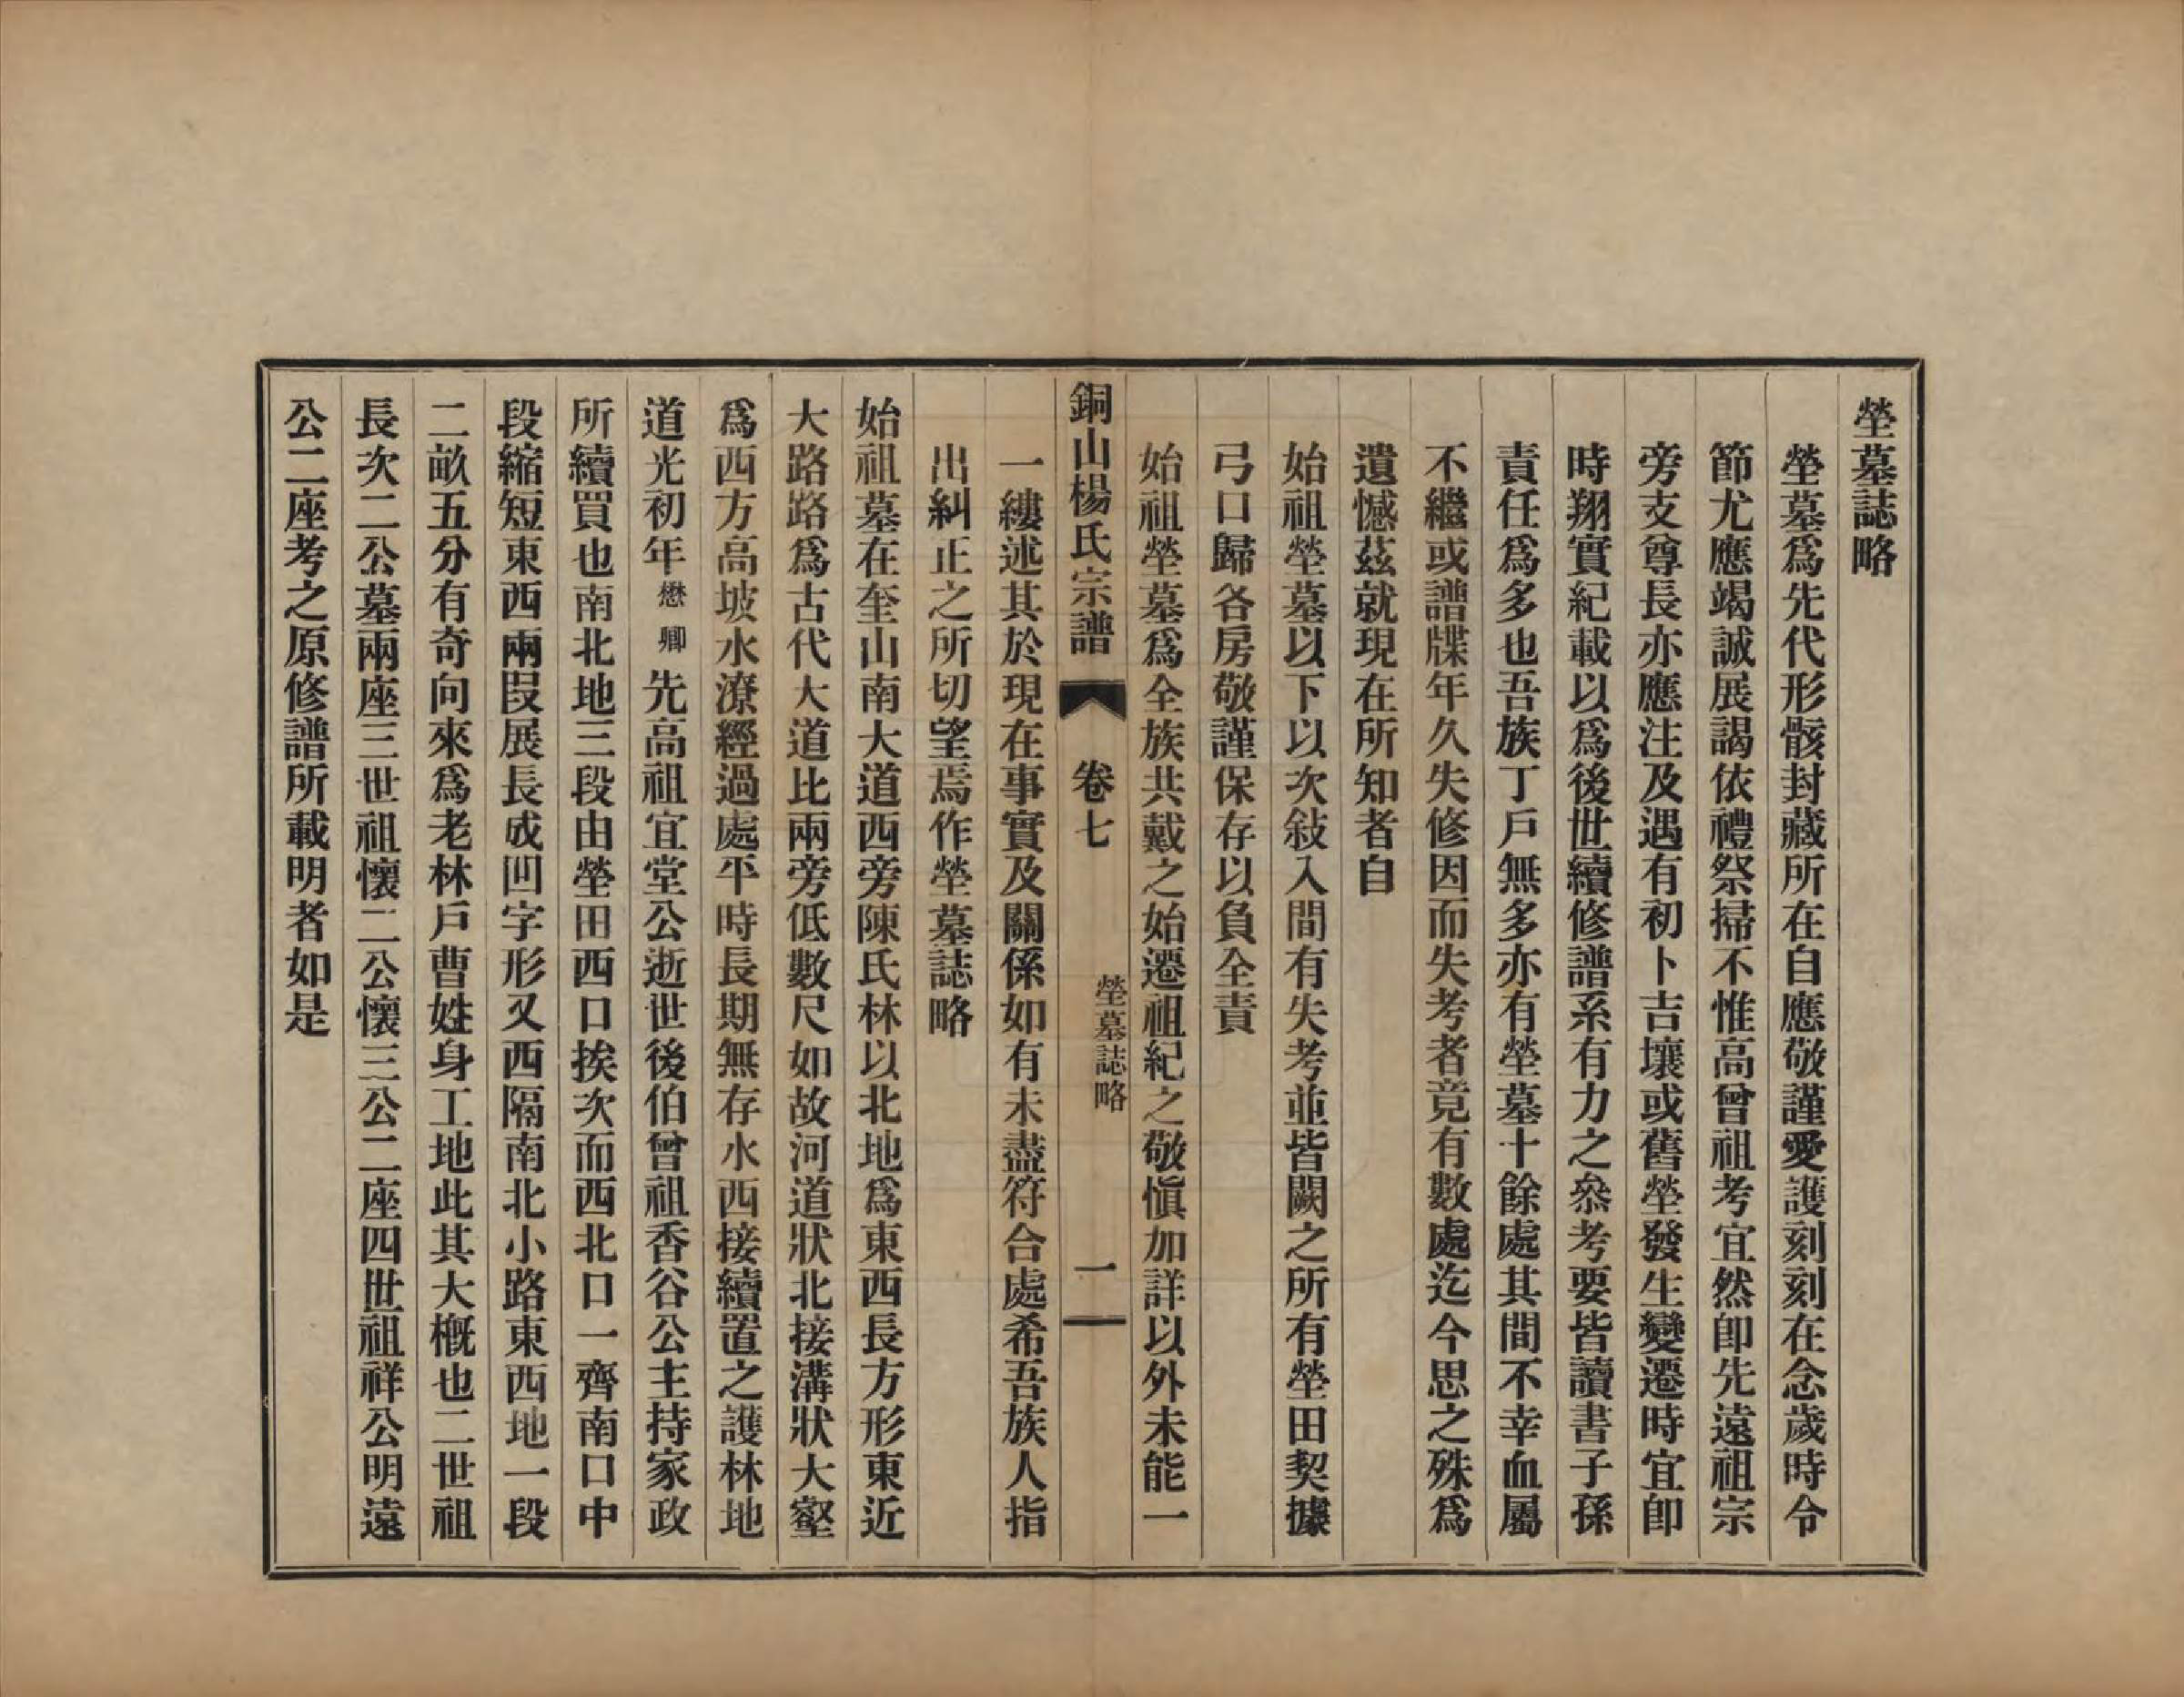 塋墓誌略
塋墓爲先代形骸封藏所在自應敬謹愛護刻刻在念歲時令
節尤應竭誠展謁依禮祭掃不惟高曾祖考宜然卽先遠祖宗
旁支尊長亦應注及遇有初卜吉壤或舊塋發生變遷時宜卽
時翔實紀載以爲後世續修譜系有力之叅考要皆讀書子孫
責任爲多也吾族丁戶無多亦有塋墓十餘處其間不幸血屬
不繼或譜牒年久失修因而失考者竟有數處迄今思之殊爲
遺憾茲就現在所知者自
始祖塋墓以下以次敍入間有失考並皆闕之所有塋田契據
弓口歸各房敬謹保存以負全責
始祖塋墓爲全族共戴之始遷祖紀之敬愼加詳以外未能一
銅山楊氏宗譜 卷七 塋墓誌略 一
一縷述其於現在事實及關係如有未盡符合處希吾族人指
出糾正之所切望焉作塋墓誌略
始祖墓在奎山南大道西旁陳氏林以北地爲東西長方形東近
大路路爲古代大道比兩旁低數尺如故河道狀北接溝狀大壑
爲西方高坡水潦經過處平時長期無存水西接續置之護林地
道光初年懋卿先高祖宜堂公逝世後伯曾祖香谷公主持家政
所續買也南北地三段由塋田西口挨次而西北口一齊南口中
段縮短東西兩段展長成凹字形又西隔南北小路東西地一段
二畝五分有奇向來爲老林戶曹姓身工地此其大槪也二世祖
長次二公墓兩座三世祖懷二公懷三公二座四世祖祥公明遠
公二座考之原修譜所載明者如是